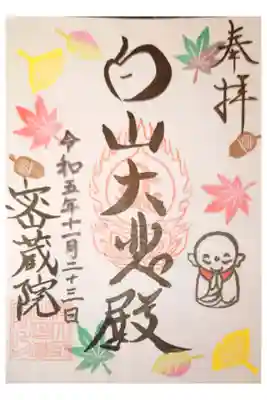 奉拝
白山大悲殿
令和五年十一月二十三日
密蔵院